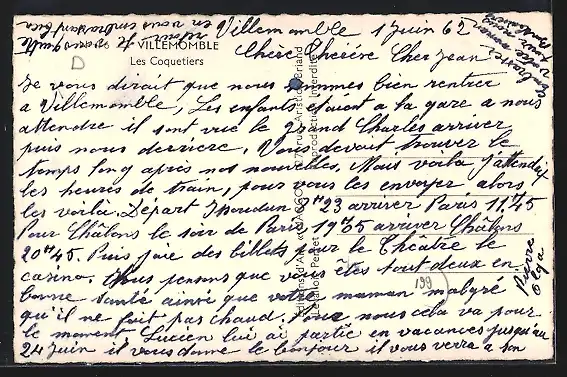 Villemomble 1 Juin 62
VILLEMOMBLE
Les Coquetiers
Chère Thérère Cher Jean
Je vous dirait que nous sommes bien rentrer
a Villemomble, Les enfants étaient a la gare a nous
attendre il sont vue le Grand Charles arriver
puis nous derrière. Vous devait trouver le
temps long après nos nouvelles. Mais voila j'attendai
les heures de train, pour vous les envoyer alors
les voila. Départ Issoudun 9H23 arriver Paris 11H45
Pour Châlons le soir de Paris 19H05 arriver Châlons
20H45. Puis j'aie des billets pour le Théâtre le
casino. Nous pensons que vous êtes tout deux en
bonne santé ainsi que votre maman malgré
qu'il ne fait pas chaud. Pour nous cela va pour
le moment. Lucien lui ai partie en vacances jusqu'au
24 Juin il vous donne le bonjour il vous verra a son
retour. Je vous quitte
en vous embrassant
Pierre
Olga
Editions d'Art
17, rue Aristide Briand
Reproduction Interdite
Levallois-Perret
199